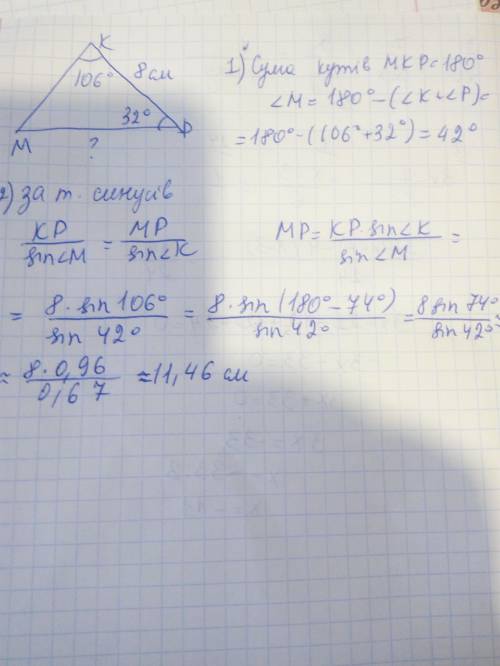 K
106°
8 см
32°
M
P
?
1) Сума кутів MKP = 180°
∠M = 180° - (∠K+∠P) =
= 180° - (106° + 32°) = 42°
2) за т. синусів
KP/sin∠M = MP/sin∠K
MP = KP · sin∠K/sin∠M =
= 8 · sin 106°/sin 42° = 8 · sin (180° - 74°)/sin 42° = 8 sin 74°/sin 42° ≈
≈ 8 · 0,96/0,67 ≈ 11,46 см